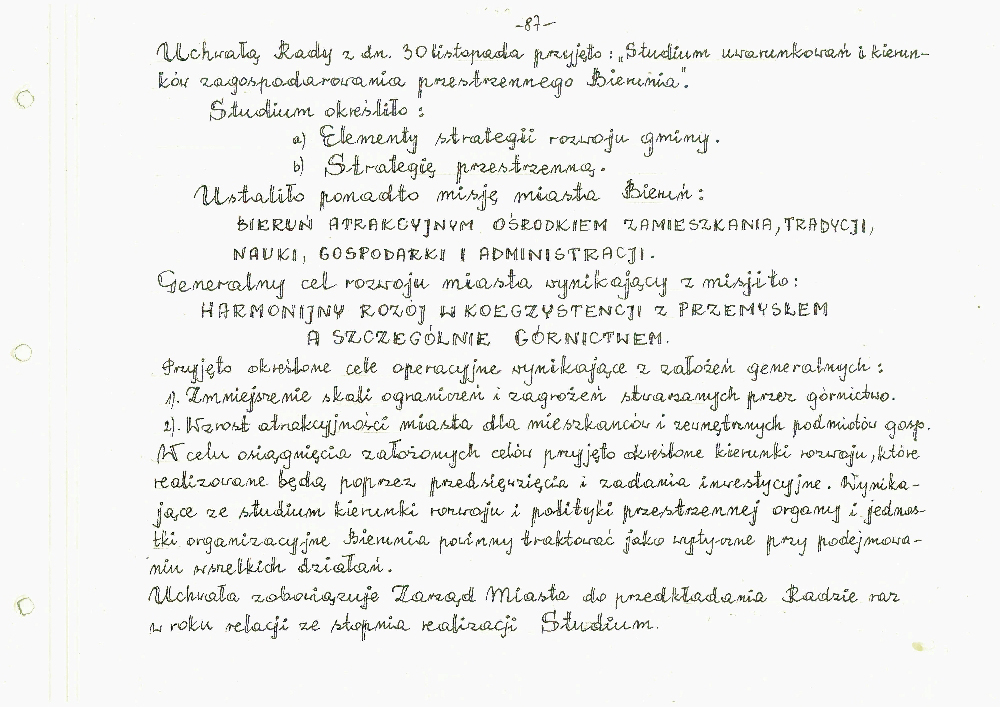 -87-
Uchwałą Rady z dn. 30 listopada przyjęto: „Studium uwarunkowań i kierun-
ków zagospodarowania przestrzennego Bierunia".
Studium określiło:
a) Elementy strategii rozwoju gminy.
b) Strategię przestrzenną.
Ustaliło ponadto misję miasta Bieruń:
BIERUŃ ATRAKCYJNYM OŚRODKIEM ZAMIESZKANIA, TRADYCJI,
NAUKI, GOSPODARKI I ADMINISTRACJI.
Generalny cel rozwoju miasta wynikający z misji to:
HARMONIJNY ROZÓJ W KOEGZYSTENCJI Z PRZEMYSŁEM
A SZCZEGÓLNIE GÓRNICTWEM.
Przyjęto określone cele operacyjne wynikające z założeń generalnych:
1). Zmniejszenie skali ograniczeń i zagrożeń stwarzanych przez górnictwo.
2). Wzrost atrakcyjności miasta dla mieszkańców i zewnętrznych podmiotów gosp.
W celu osiągnięcia założonych celów przyjęto określone kierunki rozwoju, które
realizowane będą poprzez przedsięwzięcia i zadania inwestycyjne. Wynika-
jące ze studium kierunki rozwoju i polityki przestrzennej organy i jednos-
tki organizacyjne Bierunia powinny traktować jako wytyczne przy podejmowa-
niu wszelkich działań.
Uchwała zobowiązuje Zarząd Miasta do przedkładania Radzie raz
w roku relacji ze stopnia realizacji Studium.